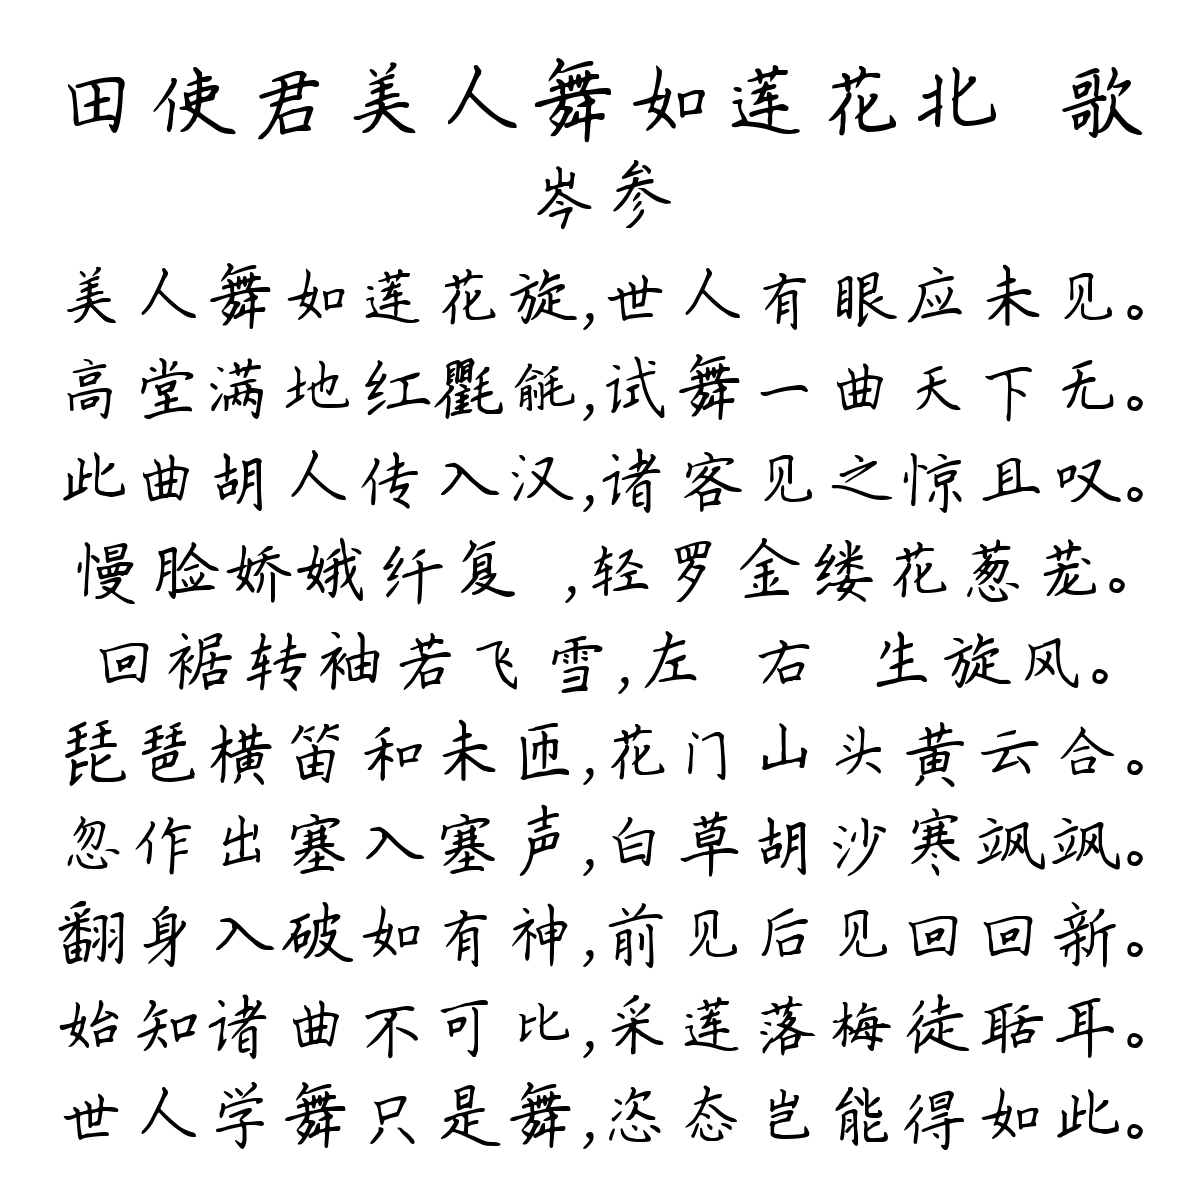 田使君美人舞如莲花北 歌
岑参
美人舞如莲花旋,世人有眼应未见。
高堂满地红氍毹,试舞一曲天下无。
此曲胡人传入汉,诸客见之惊且叹。
慢脸娇娥纤复 ,轻罗金缕花葱茏。
回裾转袖若飞雪,左 右 生旋风。
琵琶横笛和未匝,花门山头黄云合。
忽作出塞入塞声,白草胡沙寒飒飒。
翻身入破如有神,前见后见回回新。
始知诸曲不可比,采莲落梅徒聒耳。
世人学舞只是舞,恣态岂能得如此。